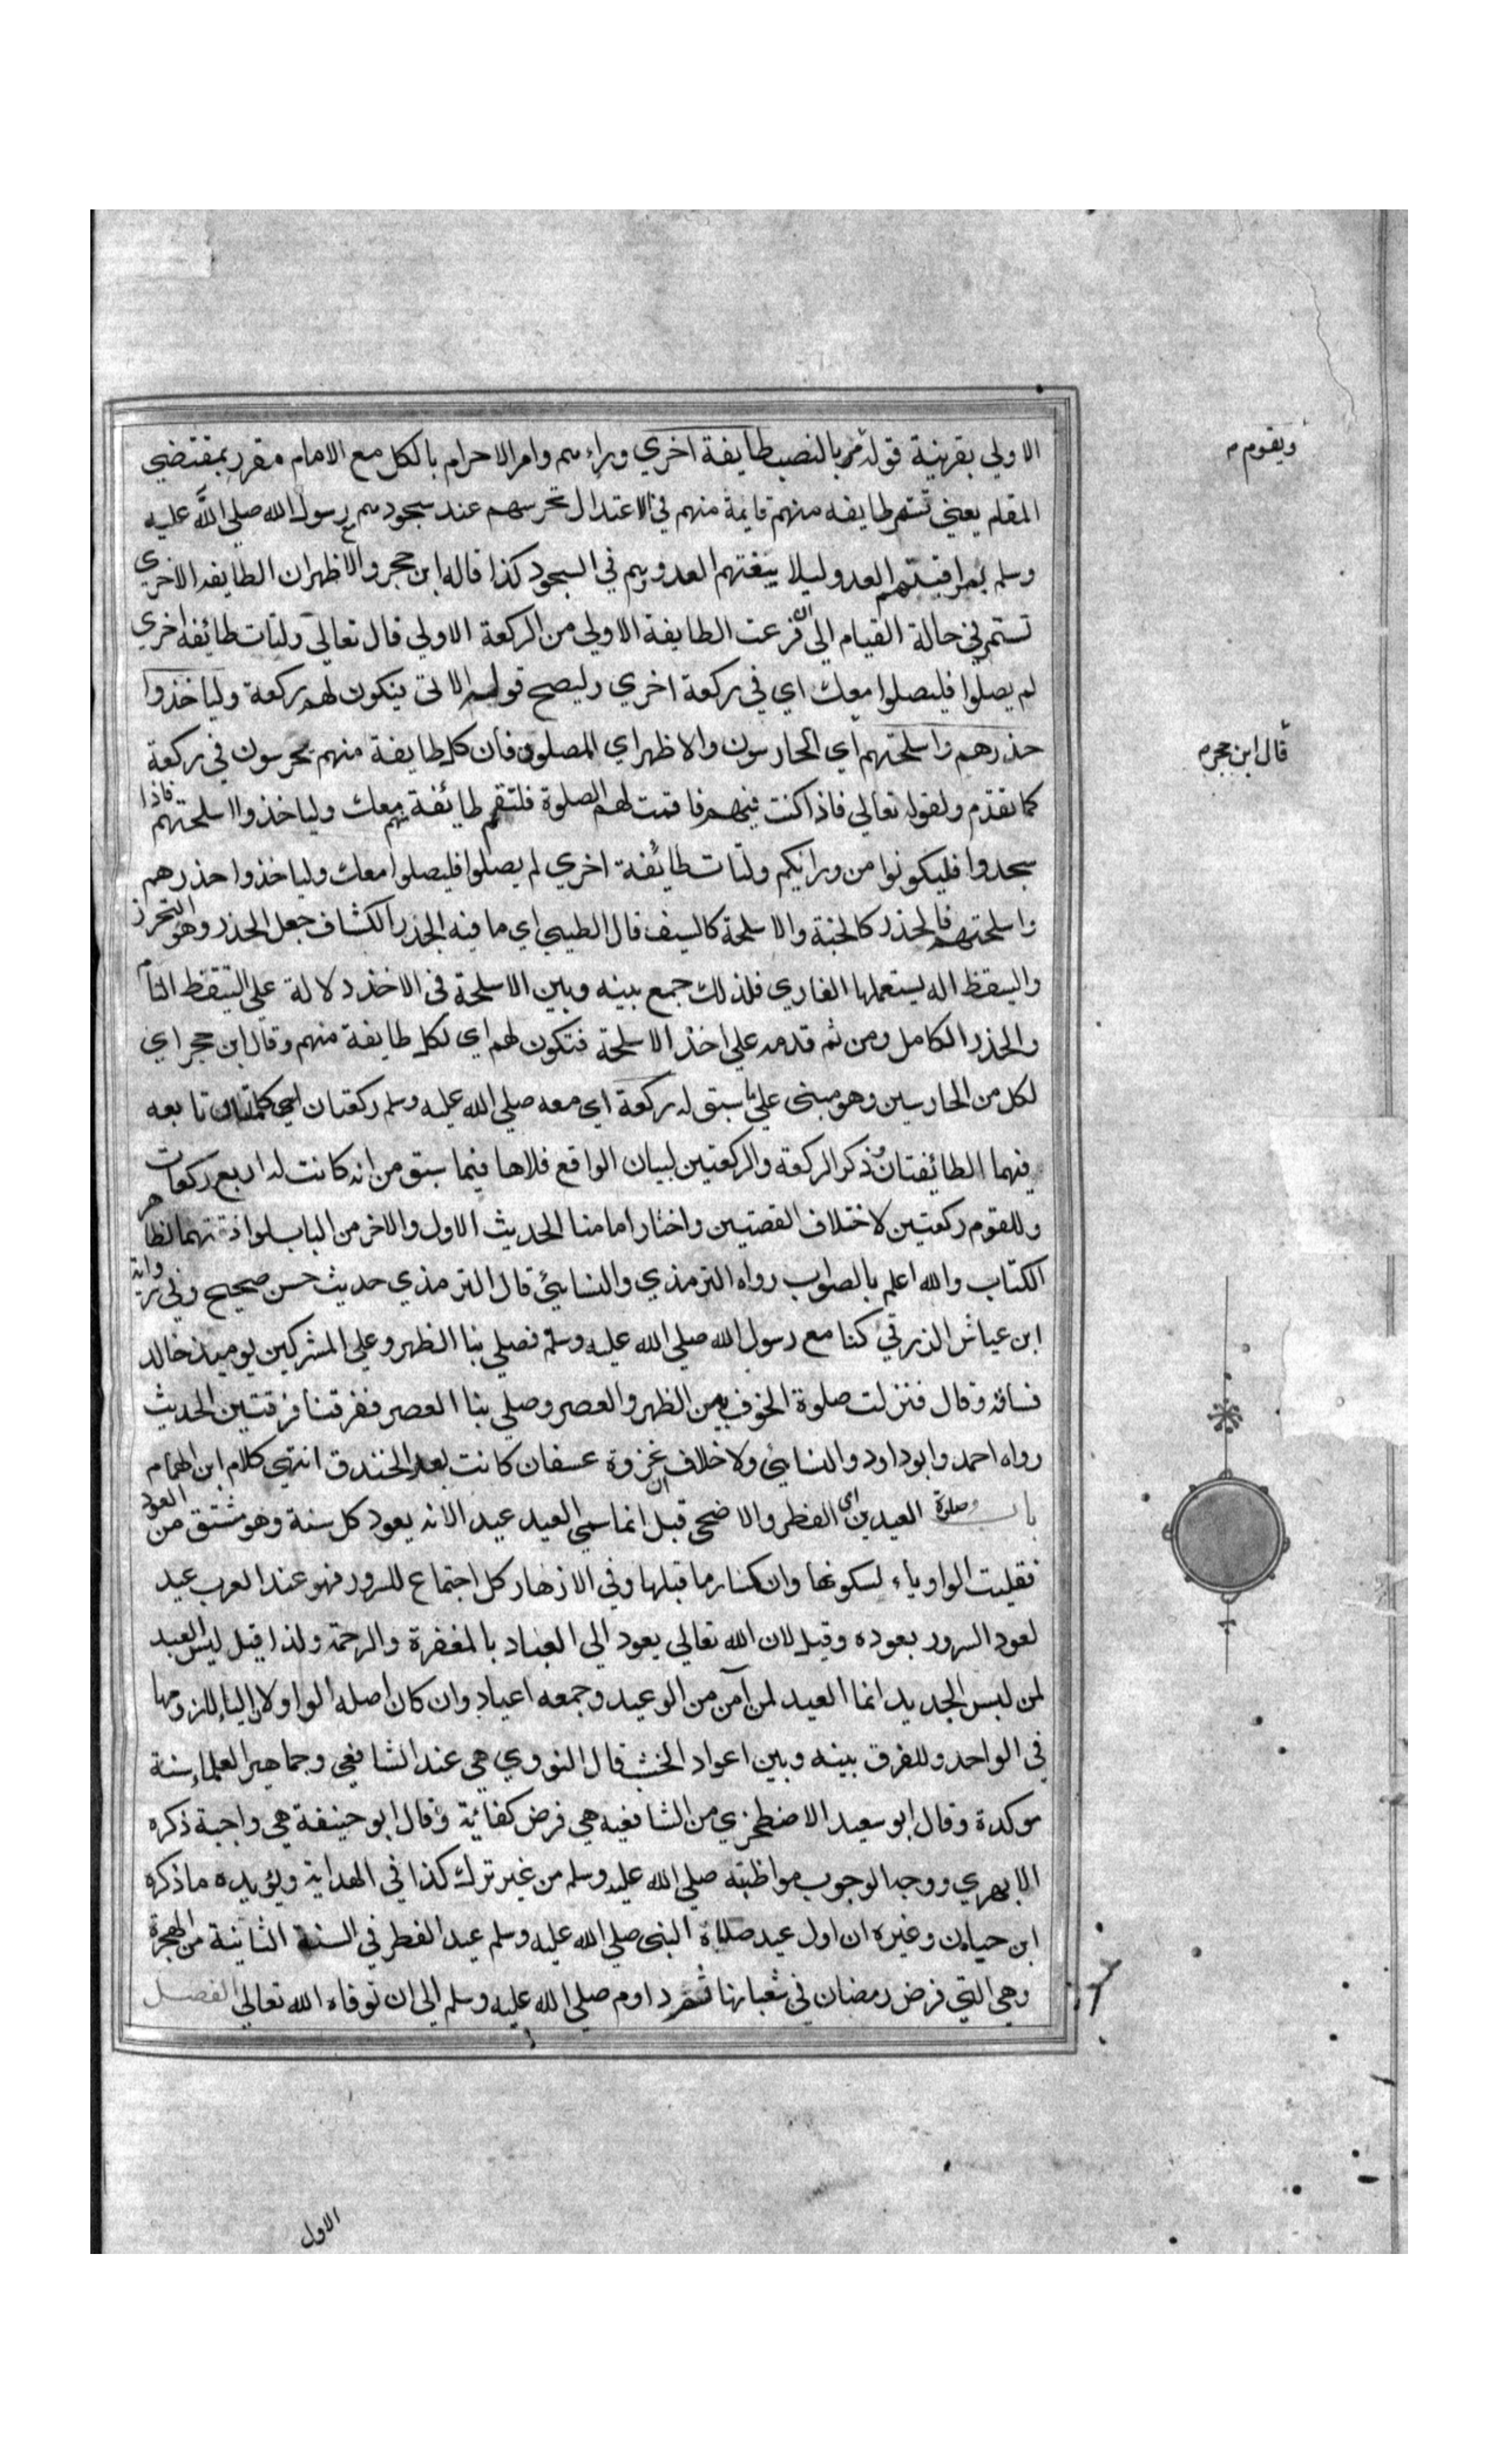 الاولي بقرينة قوله ويقوم بالنصب طايفة اخري وراءهم وامر الاحرام بالكل مع الامام مقرر بمقتضي
المقام يعني تستمر طايفه منهم قايمة منهم في الاعتدال تحرسهم عند سجودهم مع رسول الله صلي الله عليه
وسلم بمراقبتهم العدو ليلا يبغتهم العدو وهم في السجود كذا قاله ابن حجر والاظهر ان الطايفه الاخري
تستمر في حالة القيام الي ان فرغت الطايفة الاولي من الركعة الاولي قال تعالي ولتات طائفه اخري
لم يصلوا فليصلوا معك اي في ركعة اخري وليصح قولهم الاتي فيكون لهم ركعة ولياخذوا
حذرهم واسلحتهم اي الحارسون والاظهر اي المصلون فان كل طايفة منهم يحرسون في ركعة
كما تقدم ولقوله تعالي فاذا كنت فيهم فاقمت لهم الصلوة فلتقم طائفة منهم معك ولياخذوا اسلحتهم فاذا
سجدوا فليكونوا من ورائكم ولتات طائفة اخري لم يصلوا فليصلوا معك ولياخذوا حذرهم
واسلحتهم فالحذر كالجنة والاسلحة كالسيف قال الطيبي اي ما فيه الحذر الكشاف جعل الحذر وهو التحرز
والتيقظ اله يستعملها الغازي فلذلك جمع بينه وبين الاسلحة في الاخذ دلالة علي التيقظ التام
والحذر الكامل ومن ثم قدمه علي اخذ الاسلحة فتكون لهم اي لكل طايفة منهم وقال ابن حجر اي
لكل من الحارسين وهو مبني علي ما سبق له ركعة اي معه صلي الله عليه وسلم ركعتان اي كاملتان تابعه
فيهما الطائفتان وذكر الركعة والركعتين لبيان الواقع فلاها فيما سبق من انه كانت له اربع ركعات
وللقوم ركعتين لاختلاف القصتين واختار امامنا الحديث الاول والاخر من الباب لموافقتهما لظاهر
الكتاب والله اعلم بالصواب رواه الترمذي والنسائي قال الترمذي حديث حسن صحيح وفي رواية
ابن عياش الزرقي كنا مع رسول الله صلي الله عليه وسلم فصلي بنا الظهر وعلي المشركين يوميذ خالد
فساقه وقال فنزلت صلوة الخوف بين الظهر والعصر وصلي بنا العصر ففرقنا فرقتين الحديث
رواه احمد وابوداود والنسائي ولا خلاف ان غزوة عسفان كانت بعد الخندق انتهي كلام ابن الهمام
باب صلوة العيدين اي الفطر والاضحي قيل انما سمي العيد عيد الانه يعود كل سنة وهو مشتق من العود
فقلبت الواو ياء لسكونها وانكسار ما قبلها وفي الازهار كل اجتماع للسرور فهو عند العرب عيد
لعود السرور بعوده وقيل لان الله تعالي يعود الي العباد بالمغفرة والرحمة ولذا قيل ليس العيد
لمن لبس الجديد انما العيد لمن آمن من الوعيد وجمعه اعياد وان كان اصله الواو لان الياء للزومها
في الواحد وللفرق بينه وبين اعواد الخشب قال النووي هي عند الشافعي وجماهير العلماء سنة
موكدة وقال ابو سعيد الاصطخري من الشافعيه هي فرض كفائة وقال ابو حنيفة هي واجبة ذكره
الابهري ووجه الوجوب مواظبته صلي الله عليه وسلم من غير ترك كذا في الهداية ويؤيده ما ذكره
ابن حبان وغيره ان اول عيد صلاة النبي صلي الله عليه وسلم عيد الفطر في السنة الثانية من الهجرة
وهي التي فرض رمضان في شعبانها ثم داوم صلي الله عليه وسلم الي ان توفاه الله تعالي الفصل
الاول
ويقوم م
قال ابن حجر م